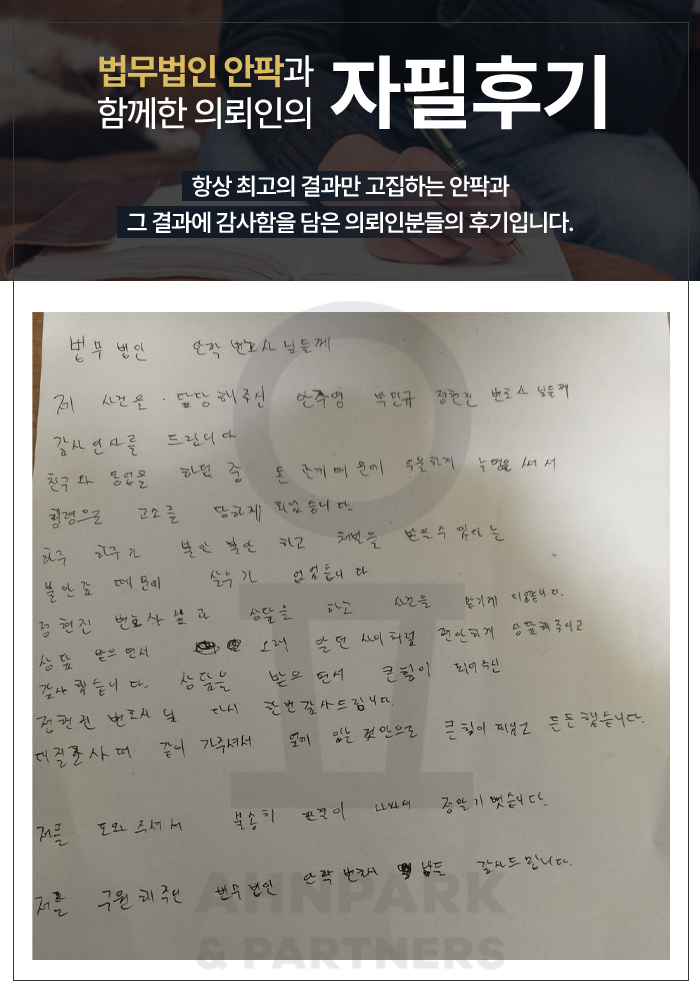 법무법인 안팍과
함께한 의뢰인의
자필후기
항상 최고의 결과만 고집하는 안팍과
그 결과에 감사함을 담은 의뢰인분들의 후기입니다.
법무 법인 안팍 변호사 님들께
제 사건을 담당 해주신 안주영 박민규 정현진 변호사 님들께
감사 인사를 드립니다
친구와 동업을 하던 중 돈 관계 때문에 억울하게 누명을 써서
횡령으로 고소를 당하게 되었습니다.
하루 하루가 불안 불안 하고 처벌을 받을수 있다는
불안감 때문에 살수가 없었습니다
정현진 변호사님과 상담을 하고 사건을 맡기게 되었습니다.
상담 받으면서 오래 알던 사이처럼 편안하게 상담해주시고
감사했습니다. 상담을 받으면서 큰힘이 되어주신
정현진 변호사님 다시 한번 감사드립니다.
대질조사때 같이 가주셔서 옆에 있는 것만으로 큰힘이 되었고 든든했습니다.
저를 도와주셔서 불송치 결과나와서 정말기뻤습니다.
저를 구원해주신 법무법인 안팍 변호사 님들 감사드립니다.
AHNPARK
& PARTNERS